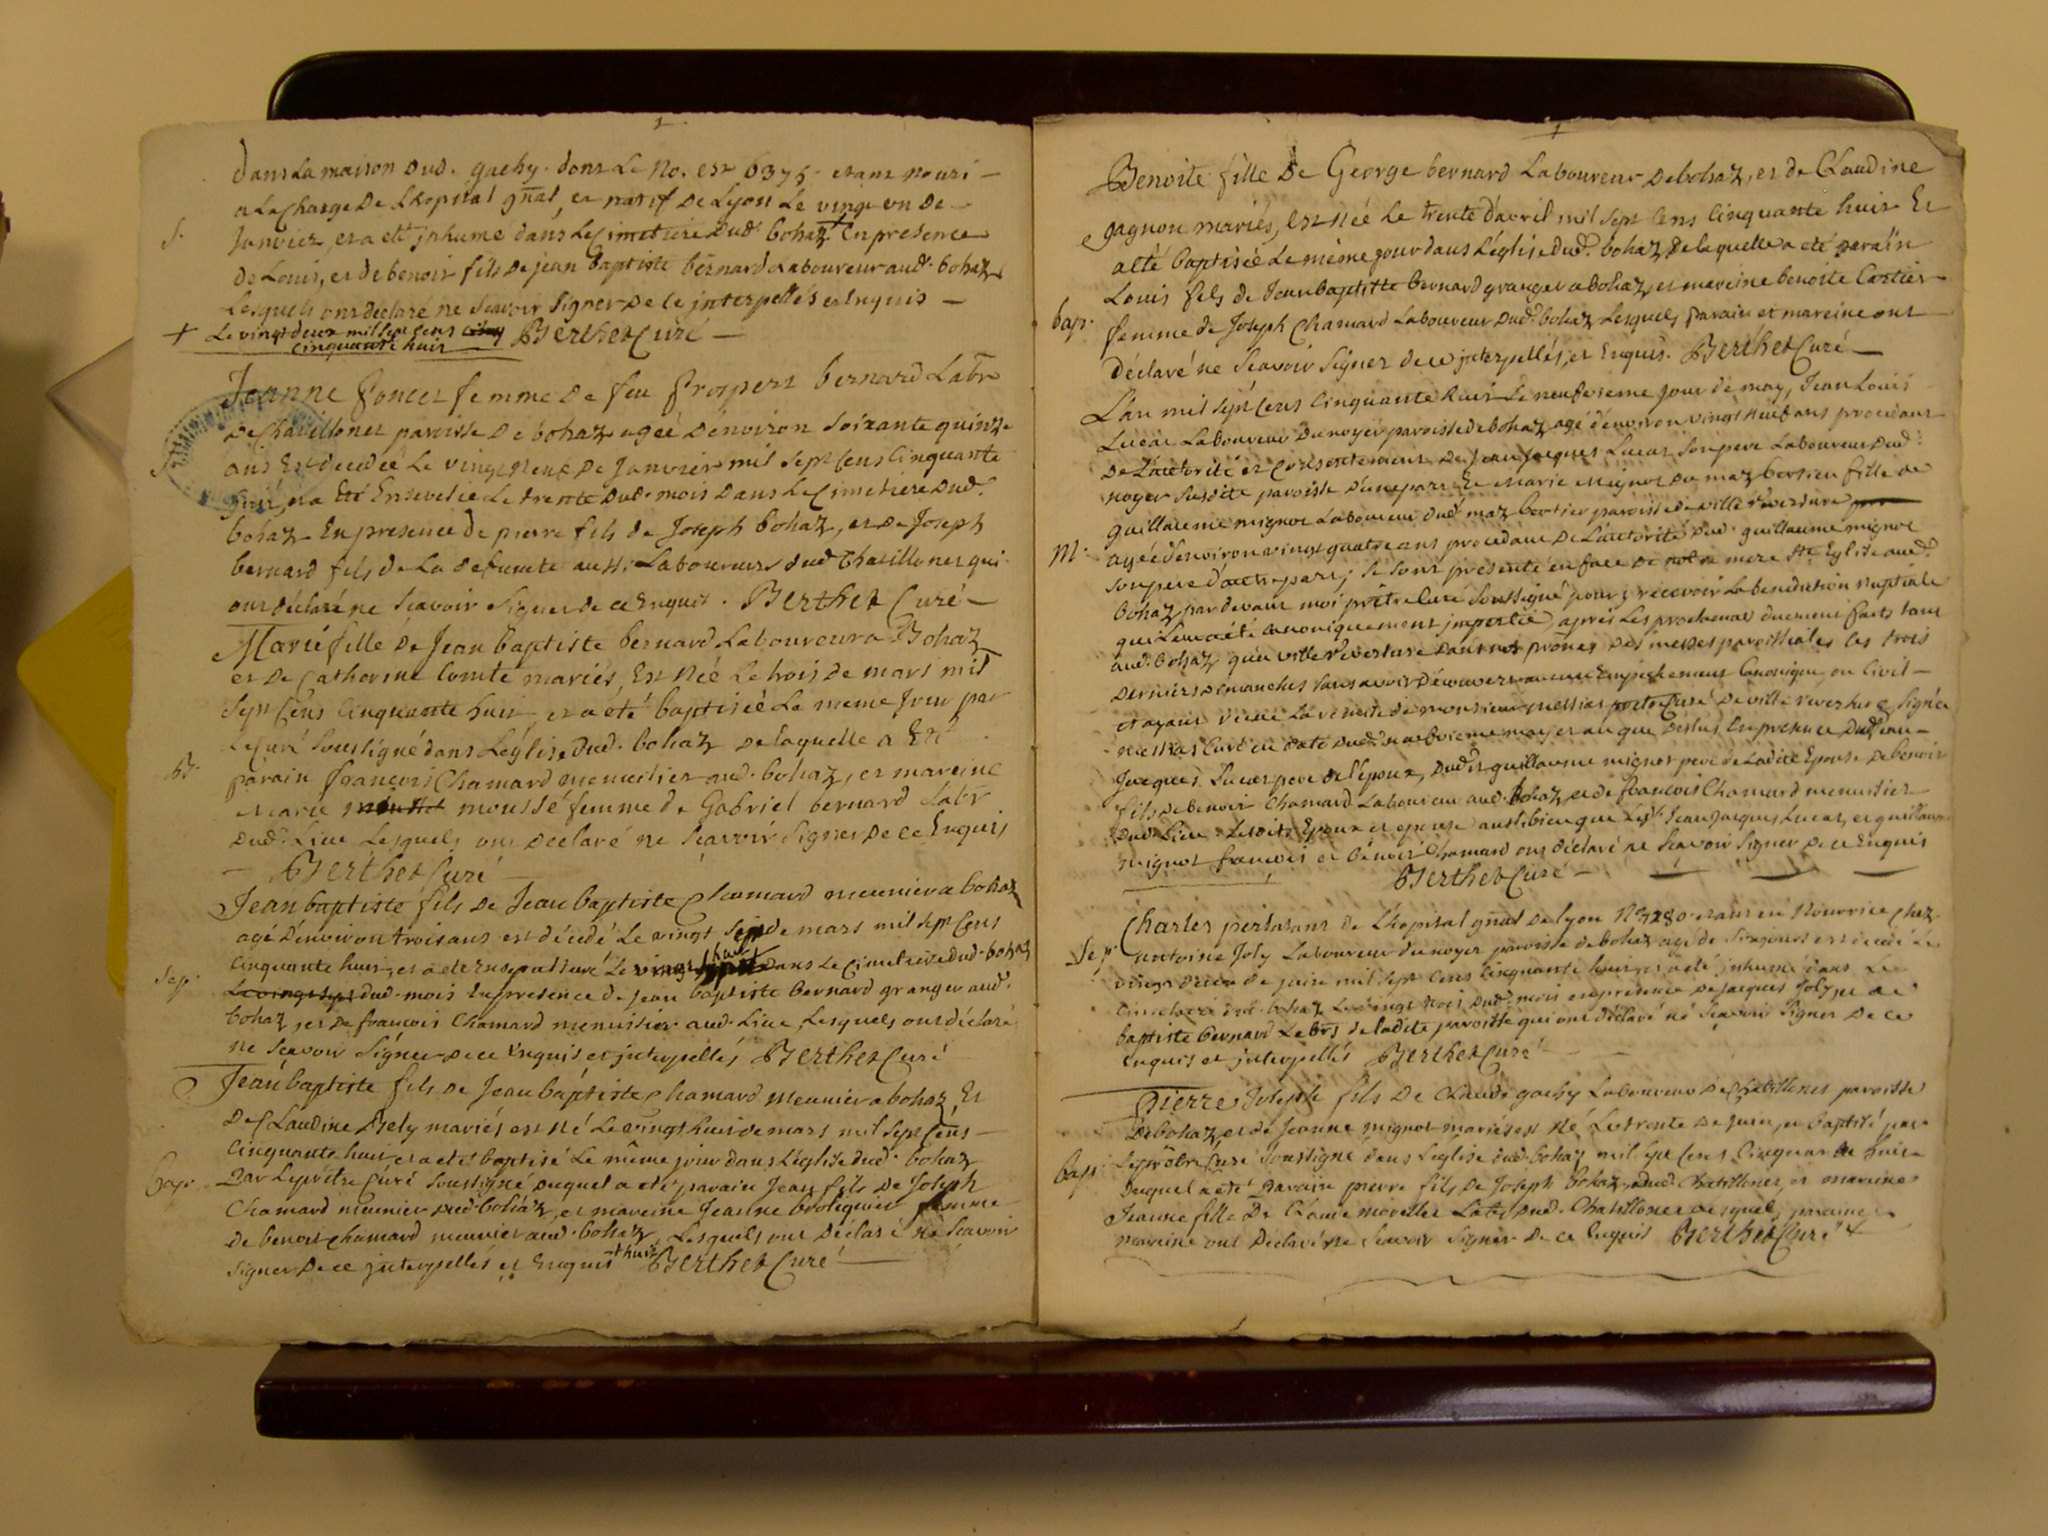 dans la maison dud. gachy dont le No. est 6375 etant nouri
a la Charge de L'hopital gñal, et natif de Lyon Le vingt un de
S.
Janvier, et a eté jnhumé dans Le Cimetiere dud. bohaz + En presence
de Louis, et de benoit fils de jean baptiste bernard Laboureur aud. bohaz
Lesquels ont déclaré ne Scavoir Signer de Ce jnterpellés et Enquis
+ Le vingt deux mil sept cens cinquante huit Berthet Curé
Jeanne Poncet femme de feu Prospert bernard Labr
de Chatillonet paroisse de bohaz agée d'environ Soixante quinze
S.
ans Est decedeé Le vingt neuf de Janvier mil Sept Cens Cinquante
huit, et a Eté Ensevelie Le trente dud. mois dans Le Cimetiere dud.
bohaz En presence de pierre fils de Joseph bohaz, et de Joseph
bernard fils de La defunte aussi Laboureurs dud Chatillonet qui
ont déclaré ne Scavoir Signer de ce Enquis. Berthet Curé
Marie fille de Jean baptiste bernard Laboureur a Bohaz
et de Catherine Comte mariés, Est Née Le trois de mars mil
Sept Cens Cinquante huit et a eté baptiseé Le meme Jour par
Le Curé Soussigné dans L'église dud. bohaz de laquelle a Eté
B.
parain françois Chamard menuisier aud. bohaz, et mareine
Marie moussé femme de Gabriel bernard Labr
dud. Lieu Lesquels ont declaré ne Scavoir Signer de ce Enquis
Berthet Curé
Jean baptiste fils de Jean baptiste Chamard meunier a bohaz
agé d'environ trois ans est décédé Le vingt Sept de mars mil Sept Cens
Cinquante huit, et a eté Ensepulturé Le vingt huit dans Le Cimetiere dud. bohaz
Sep.
Le vingt sept dud. mois En presence de jean baptiste bernard granger aud.
bohaz, et de francois Chamard menuisier aud. Lieu, Lesquels ont déclaré
ne Scavoir Signer de ce Enquis et jnterpellés Berthet Curé
Jean baptiste fils de Jean baptiste Chamard Meunier a bohaz, Et
de Claudine Bely mariés est Né Le vingt huit de mars mil Sept Cens
Cinquante huit et a eté baptisé Le même jour dans L'église dud. bohaz
bap.
Par Le prêtre Curé Soussigné duquel a eté parain Jean fils de Joseph
Chamard meunier dud bohaz, et mareine Jeanne femme
de benoit Chamard meunier aud. bohaz, Lesquels ont Déclaré Ne Scavoir
Signer de ce jnterpellés et Enquis Berthet Curé
Benoite fille de George bernard Laboureur de bohaz, et de Claudine
gagnon mariés, Est Née Le trente d'avril mil Sept Cens Cinquante huit Et
a été baptiseé Le même jour dans L'église dud. bohaz de laquelle a eté parain
Louis fils de Jean baptiste bernard granger a bohaz, et mareine benoite Cartier
bap.
femme de Joseph Chamard Laboureur dud. bohaz Lesquels parain et mareine ont
déclaré ne Scavoir Signer de ce jnterpellés, et Enquis. Berthet Curé
L'an mil Sept Cens Cinquante huit Le neufvieme jour de may, Jean Louis
Lucas Laboureur du noyer paroisse de bohaz agé d'environ vingt huit ans procedant
de L'autorité et Consentement de Jean Jacques Lucas Son pere Laboureur dud.
noyer Susdite paroisse d'une part Et Marie Mignot du maz bertieu fille de
guillaume mignot Laboureur dud maz bertier paroisse de ville reversure
M.
agée d'environ vingt quatre ans procedant de L'autorité dud. guillaume mignot
Son pere d'autre part; Se Sont présenté en face de notre mere Ste. Eglise aud.
bohaz par devant moi prêtre Curé Soussigné pour y recevoir La benediction nuptiale
qui Leur a été Canoniquement jmpartie, apres Les proclamas duement faits tant
aud. bohaz qu'a ville reversure dans nos prônes des messes paroissiales les trois
derniers dimanches Sans avoir découvert aucun Empéchement Canonique ou Civil
et ayant Signée
Jacques Lucas pere de l'époux, dudit guillaume mignot pere de Ladite Epouse de benoit
fils de benoit Chamard Laboureur aud. bohaz, et de francois Chamard menuisier
dud. Lieu Lesdits Epoux et epouse aussi bien que Lesd. Jean Jacques Lucas, et guillaume
mignot francois et benoit Chamard ont déclaré ne Scavoir Signer de ce Enquis
Berthet Curé
Charles de L'hopital gñal de Lyon N. etant en Nourrice Chez
Sep.
antoine Joly Laboureur du noyer paroisse de bohaz agé de est decedé Le
vingt deux de juin mil Sept Cens Cinquante huit et a été jnhumé dans Le
Cimetiere dud. bohaz Le vingt trois dud. mois en presence de Jacques Joly, et de
baptiste bernard Labrs de ladite paroisse qui ont déclaré ne Scavoir Signer de ce
Enquis et jnterpellés Berthet Curé
Pierre Joseph fils de Claude gachy Laboureur de Chatillonet paroisse
de bohaz, et de Jeanne mignot mariés est Né Le trente de juin, et baptisé par
bap.
Le prêtre Curé Soussigné dans L'église dud. bohaz mil Sept Cens Cinquante huit
duquel a eté Parain pierre fils de Joseph bohaz dud. Chatillonet, et mareine
Jeanne fille de Claude Labr dud. Chatillonet Lesquels parain
mareine ont Déclaré ne Scavoir Signer de ce Enquis Berthet Curé +